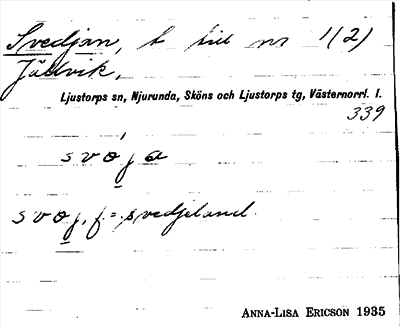 Svedjan, t till nr 1(2)
Jällvik,
Ljustorps sn, Njurunda, Sköns och Ljustorps tg, Västernorrl. l.
339
svoja
svoj, f = svedjeland.
ANNA-LISA ERICSON 1935